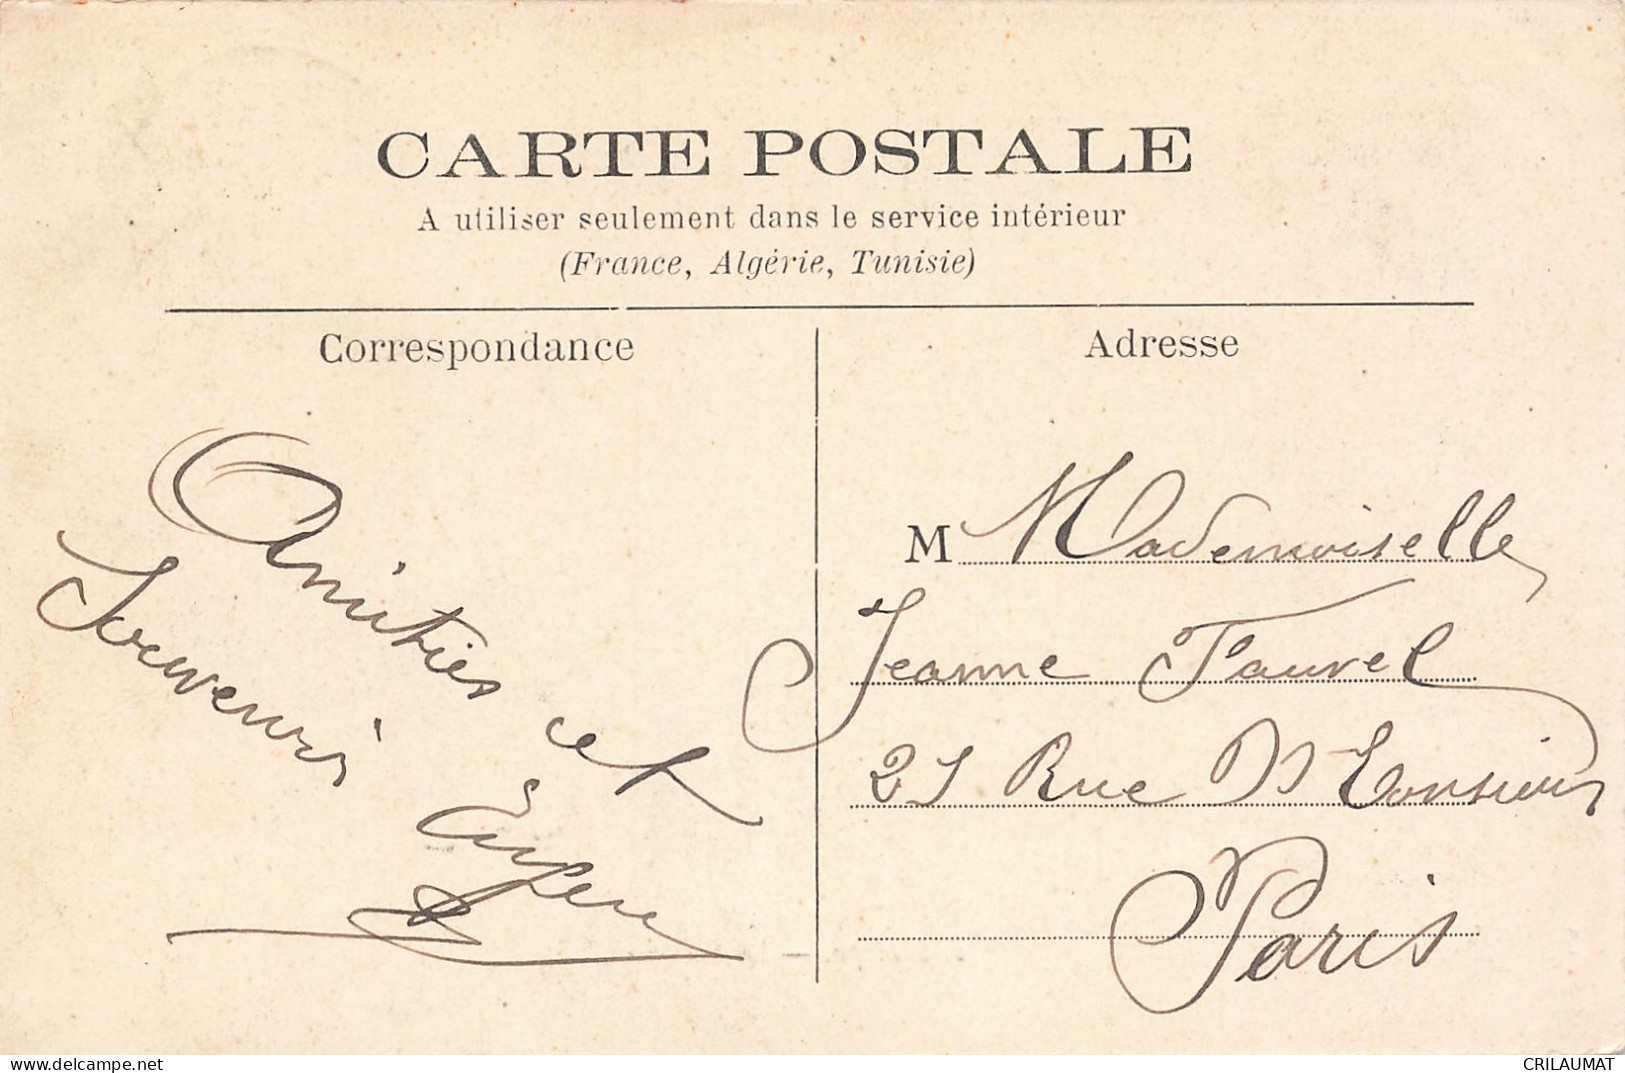 CARTE POSTALE
A utiliser seulement dans le service intérieur
(France, Algérie, Tunisie)
Correspondance
Amitiés et
Souvenir
Adresse
M Mademoiselle
Jeanne Fauvel
21 Rue Monsieur
Paris
delcampe.net
CRILAUMAT